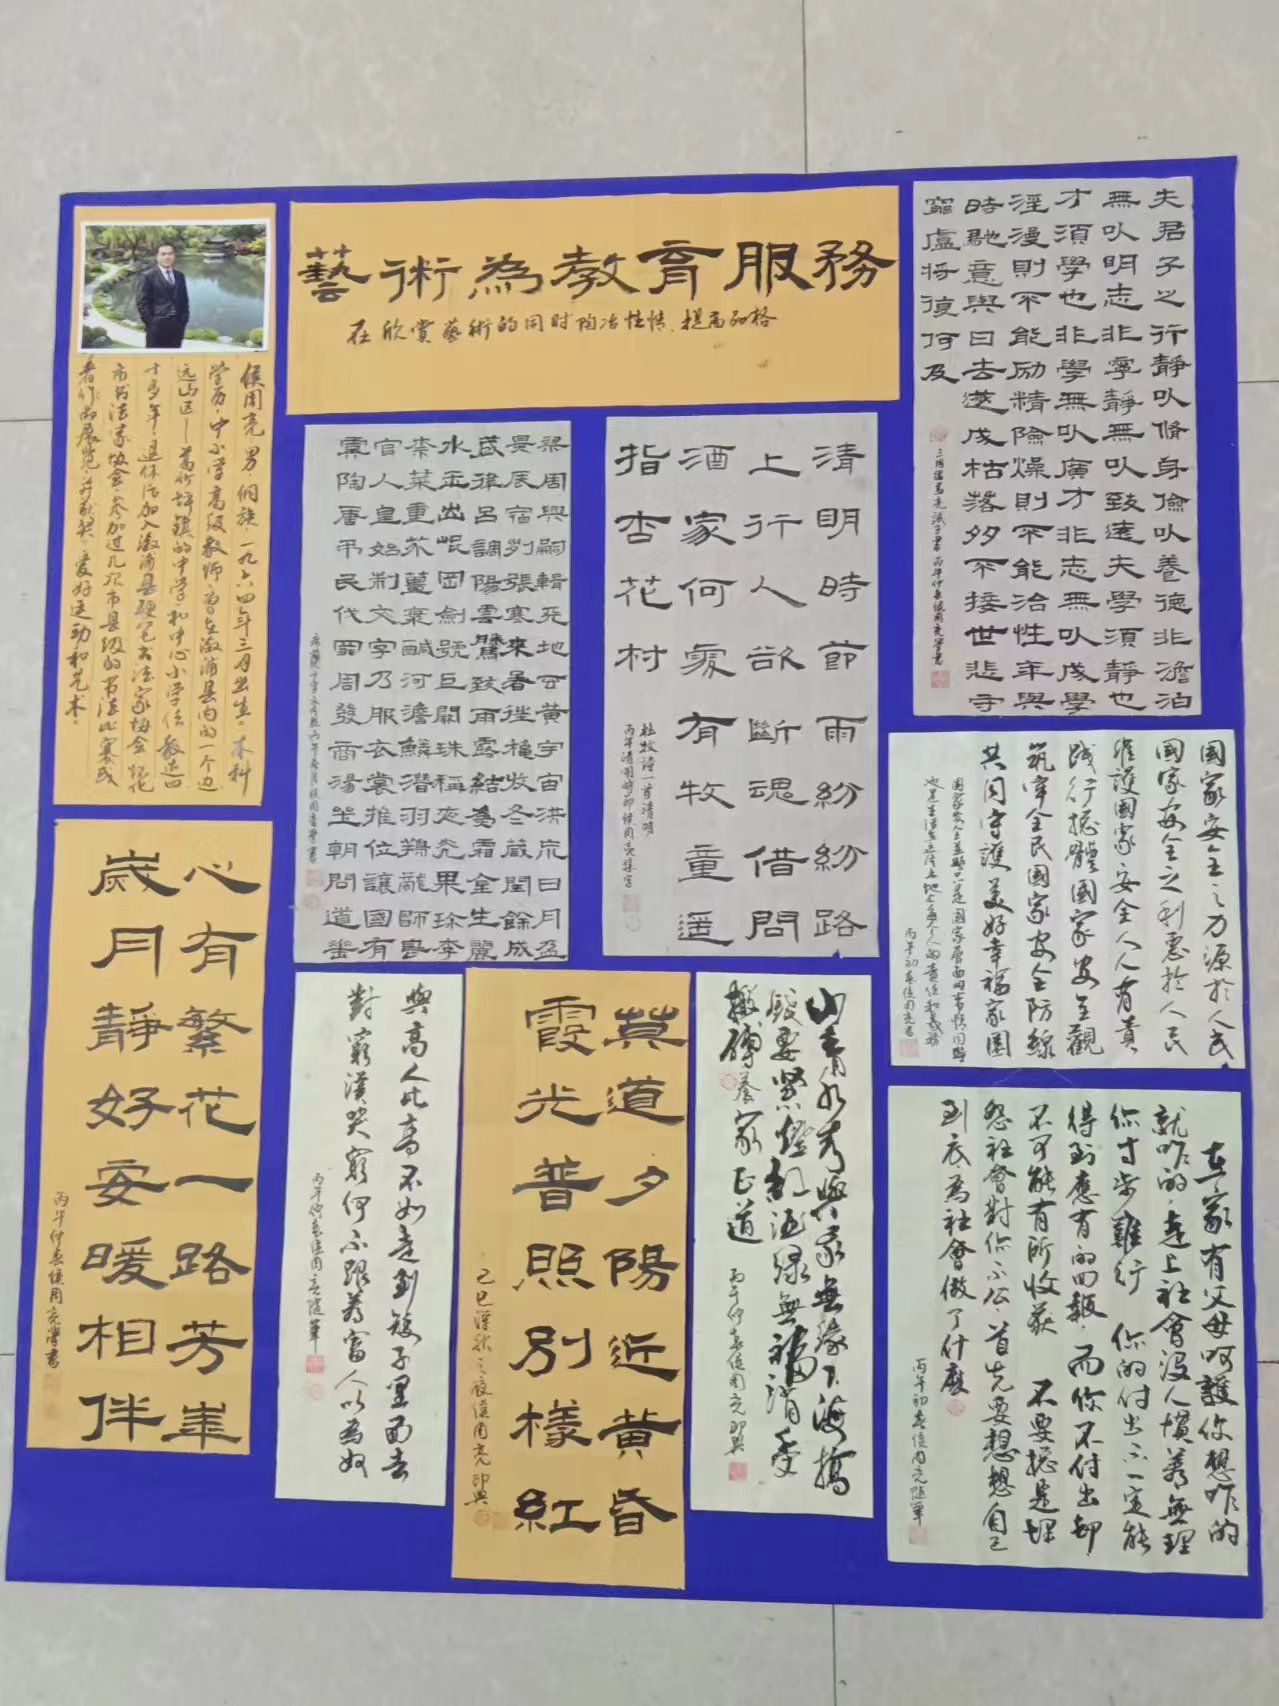 藝術為教育服務
在欣赏藝術的同时陶冶性情，提高品格
侯周亮，男，侗族，一九六四年三月出生，本科
学历，中小学高级教师，曾在溆浦县内的一个边
远山区——葛竹坪镇的中学和中心小学任教达四
十多年，退休后加入溆浦县硬笔书法家协会、怀化
市书法家协会，参加过几次市县级的书法比赛或
者作品展览，并获奖，爱好运动和艺术。
夫君子之行靜㕥脩身儉㕥養德非澹泊
無㕥明志非寧靜無㕥致遠夫學須靜也
才須學也非學無㕥廣才非志無㕥成學
淫漫則不能励精險燥則不能治性年與
時馳意與日去遂成枯落多不接世悲守
窮廬将復何及
三國諸葛亮誡子書丙午仲春侯周亮學書
清明時節雨紛紛路
上行人欲斷魂借問
酒家何處有牧童遥
指杏花村
杜牧詩一首清明
丙午清明時節侯周亮集字
梁周興嗣輯天地玄黄宇宙洪荒日月盈
昃辰宿列張寒来暑往秋收冬蔵閏餘成
歲律吕調陽雲騰致雨露結為霜金生麗
水玉出崐岡劍號巨闕珠稱夜光果珍李
柰菜重芥薑海鹹河澹鱗潛羽翔龍師
官人皇始制文字乃服衣裳推位讓國有
虞陶唐弔民伐罪周發商湯坐朝問道垂
國家安全之力源於人民
國家安全之利惠於人民
維護國家安全人人有責
踐行總體國家安全觀
筑牢全民國家安全防線
共同守護美好幸福家園
丙午初春侯周亮書
心有繁花一路芳華
歲月靜好安暖相伴
丙午仲春侯周亮學書
與高人比高不如走到矮子里面去
對窮漢哭窮何不跟着富人以為奴
丙午仲春侯周亮隨筆
莫道夕陽近黄昏
霞光普照别樣紅
乙巳深秋之夜侯周亮即興
山青水秀與我無緣下海搞
錢要緊燈紅酒綠無福消受
搬磚養家正道
丙午仲春侯周亮即興
在家有父母呵護你想咋的
就咋的，走上社會没人慣着無理
你寸步難行 你的付出不一定能
得到應有的回報，而你不付出却
不可能有所收获 不要總是埋
怨社會對你不公，首先要想想自己
到底為社會做了什麼
丙午初春侯周亮隨筆